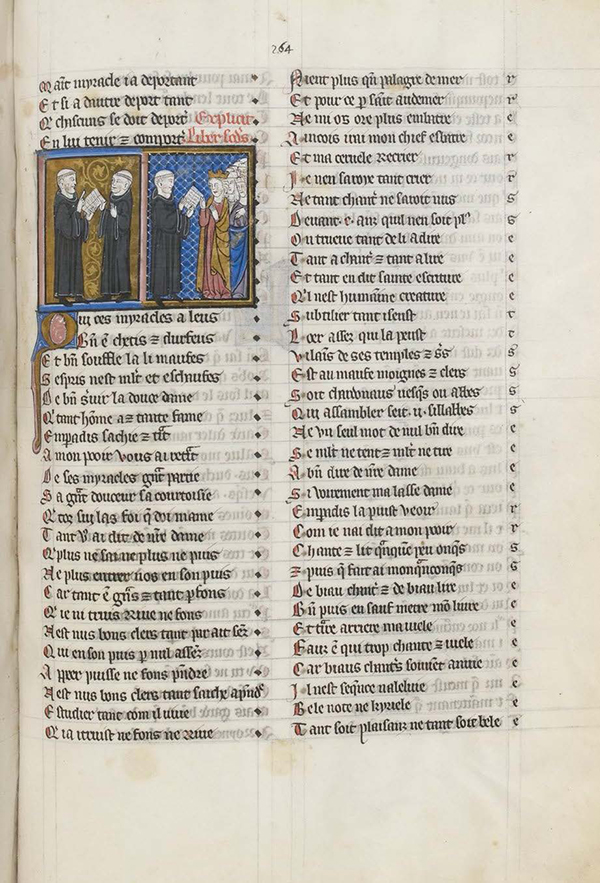 264
Maīt myracle i a deportant
Et si a dautre deport tant
Q̄ chascuns se doit deport Explicit
En lui tenir ⁊ comport Liber scd's
Qui ces myracles a leus
Bn̄ ē chetis ⁊ durfeus
Et bn̄ souffle la li maufes
Se espris nest mlt et eschaufes
De bn̄ s'uir la douce dame
Q' tant hōme a ⁊ tante fame
En padis sachie ⁊
A mon pooir vous ai
De ses myracles gnt partie
Sa gnt douceur sa courtoisie
Q' cor sui las foi q̄ doi mame
Tant v' ai dit de nr̄e dame
Q' plus ne sai ne plus ne puis
Ne plus entrer nos en son puis
Car tant ē gn's ⁊ tant pfons
Q' ie ni truis riue ne fons
Nest nus bons clers tant pit ait
Qui en son puis p nul
A pper puisse ne fons pndre
Nest nus bons clers tant sache apnd'
Estudier tant com il uiue
Q' ia truist ne fons ne riue
Nient plus qn palagre de mer r
Et pour ce p sait audemer r
Ne mi os ore plus embatre e
Aincois irai mon chief esbatre e
Et ma ceruele recrier r
Je nen sauroye tant crier r
Ne tant chant' ne sauoit nus s
Deuant .e. aur quil nen soit pl' s
On trueue tant de li a dire e
Tant a chant' ⁊ tant a lire e
Et tant en dit sainte escriture e
Q' nest humaine creature e
Subtilier tant i seust t
Loer assez qui la peust t
Vilains de ses temples ⁊ s
Est au maufe moignes ⁊ clers s
Soit chardonaus uesqs ou abbes s
Qui assembler seit .ii. sillabbes s
Ne vn seul mot de nul bn̄ dire e
Se mlt ne tent ⁊ mlt ne tire e
A bn̄ dire de nr̄e dame e
Si voirement ma lasse dame e
En padis la puist veoir r
Com ie nai dit a mon pooir r
Chante ⁊ lit qnque ieu onqs s
⁊ puis q fait ai mon qonqs s
De biau chant' ⁊ de biau lire e
Bn̄ puis en sauf metre mō liure e
Et t're arriere ma uiele e
Faur ē qui trop chante ⁊ uiele e
Car biaus chant's souuēt anuie e
Il nest sequēce nalelure e
Bele note ne kyriele e
Tant soit plaisanz ne tant soit bele e